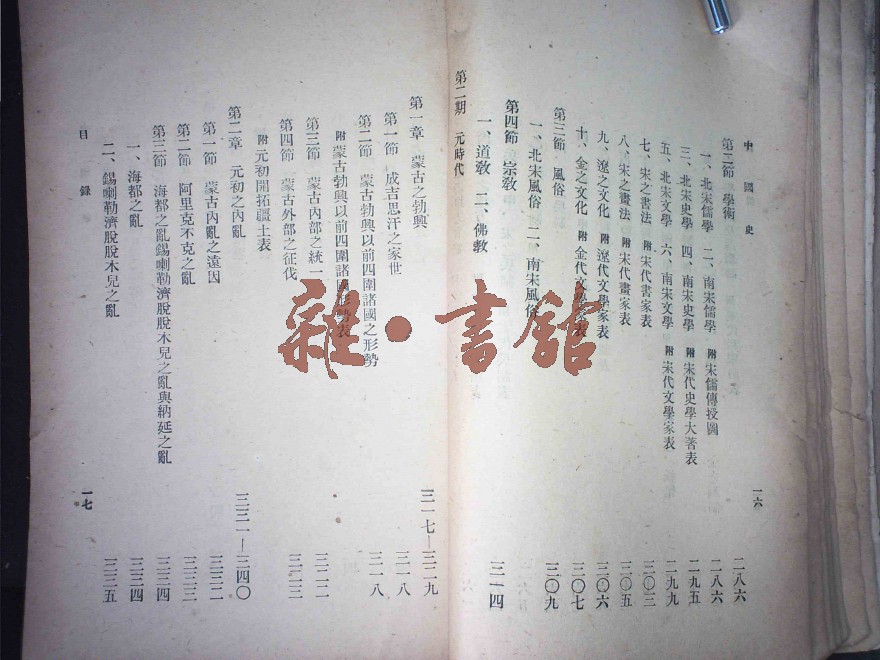 中國史
一六
第二節 學術 二八六
一、北宋儒學 二、南宋儒學 附 宋儒傳授圖 二八六
三、北宋史學 四、南宋史學 附 宋代史學大著表 二九五
五、北宋文學 六、南宋文學 附 宋代文學家表 二九九
七、宋之書法 附 宋代書家表 三〇三
八、宋之畫法 附 宋代畫家表 三〇五
九、遼之文化 附 遼代文學家表 三〇六
十、金之文化 附 金代文學家表 三〇七
第三節 風俗 三〇九
一、北宋風俗 二、南宋風俗
第四節 宗教 三一四
一、道教 二、佛教
第二期 元時代
第一章 蒙古之勃興 三一七—三二九
第一節 成吉思汗之家世 三一八
第二節 蒙古勃興以前四圍諸國之形勢 三一八
附 蒙古勃興以前四圍諸國形勢表
第三節 蒙古內部之統一 三二二
第四節 蒙古外部之征伐 三二三
附 元初開拓疆土表
第二章 元初之內亂 三三一—三四〇
第一節 蒙古內亂之遠因 三三二
第二節 阿里克不克之亂 三三四
第三節 海都之亂錫喇勒濟脫脫木兒之亂與納延之亂 三三四
一、海都之亂 三三四
二、錫喇勒濟脫脫木兒之亂 三三五
目錄
一七
雜·書館